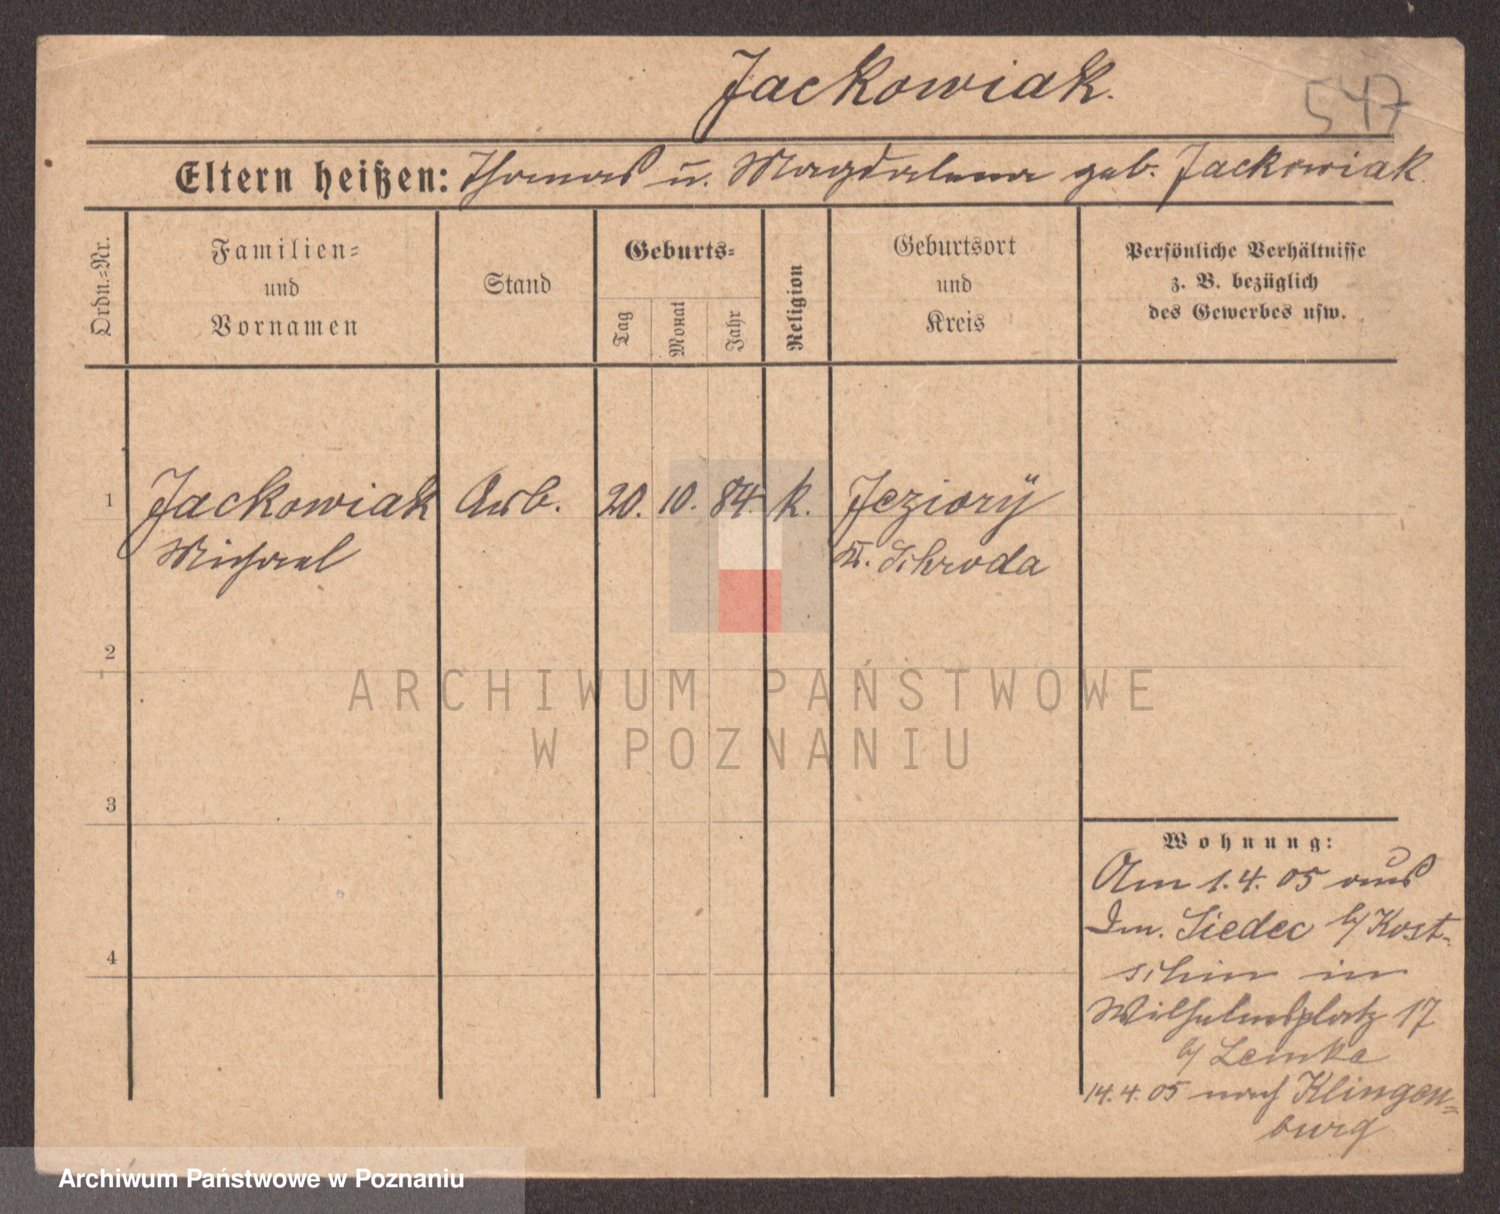 Jackowiak.
547
Eltern heißen: Thomas u. Magdalena geb. Jackowiak.
Ordn.-Nr.
Familien-
und
Vornamen
Stand
Geburts-
Tag
Monat
Jahr
Religion
Geburtsort
und
Kreis
Persönliche Verhältnisse
z. B. bezüglich
des Gewerbes usw.
1 Jackowiak Arb. 20. 10. 84. k. Jeziory
Michael Kr. Schroda
2
ARCHIWUM PAŃSTWOWE
W POZNANIU
3
Wohnung:
Am 1.4.05 aus
Dm. Siedec b/ Kost-
schin in
4
Wilhelmsplatz 17
b/ Lemke
14.4.05 nach Klingen-
burg
Archiwum Państwowe w Poznaniu